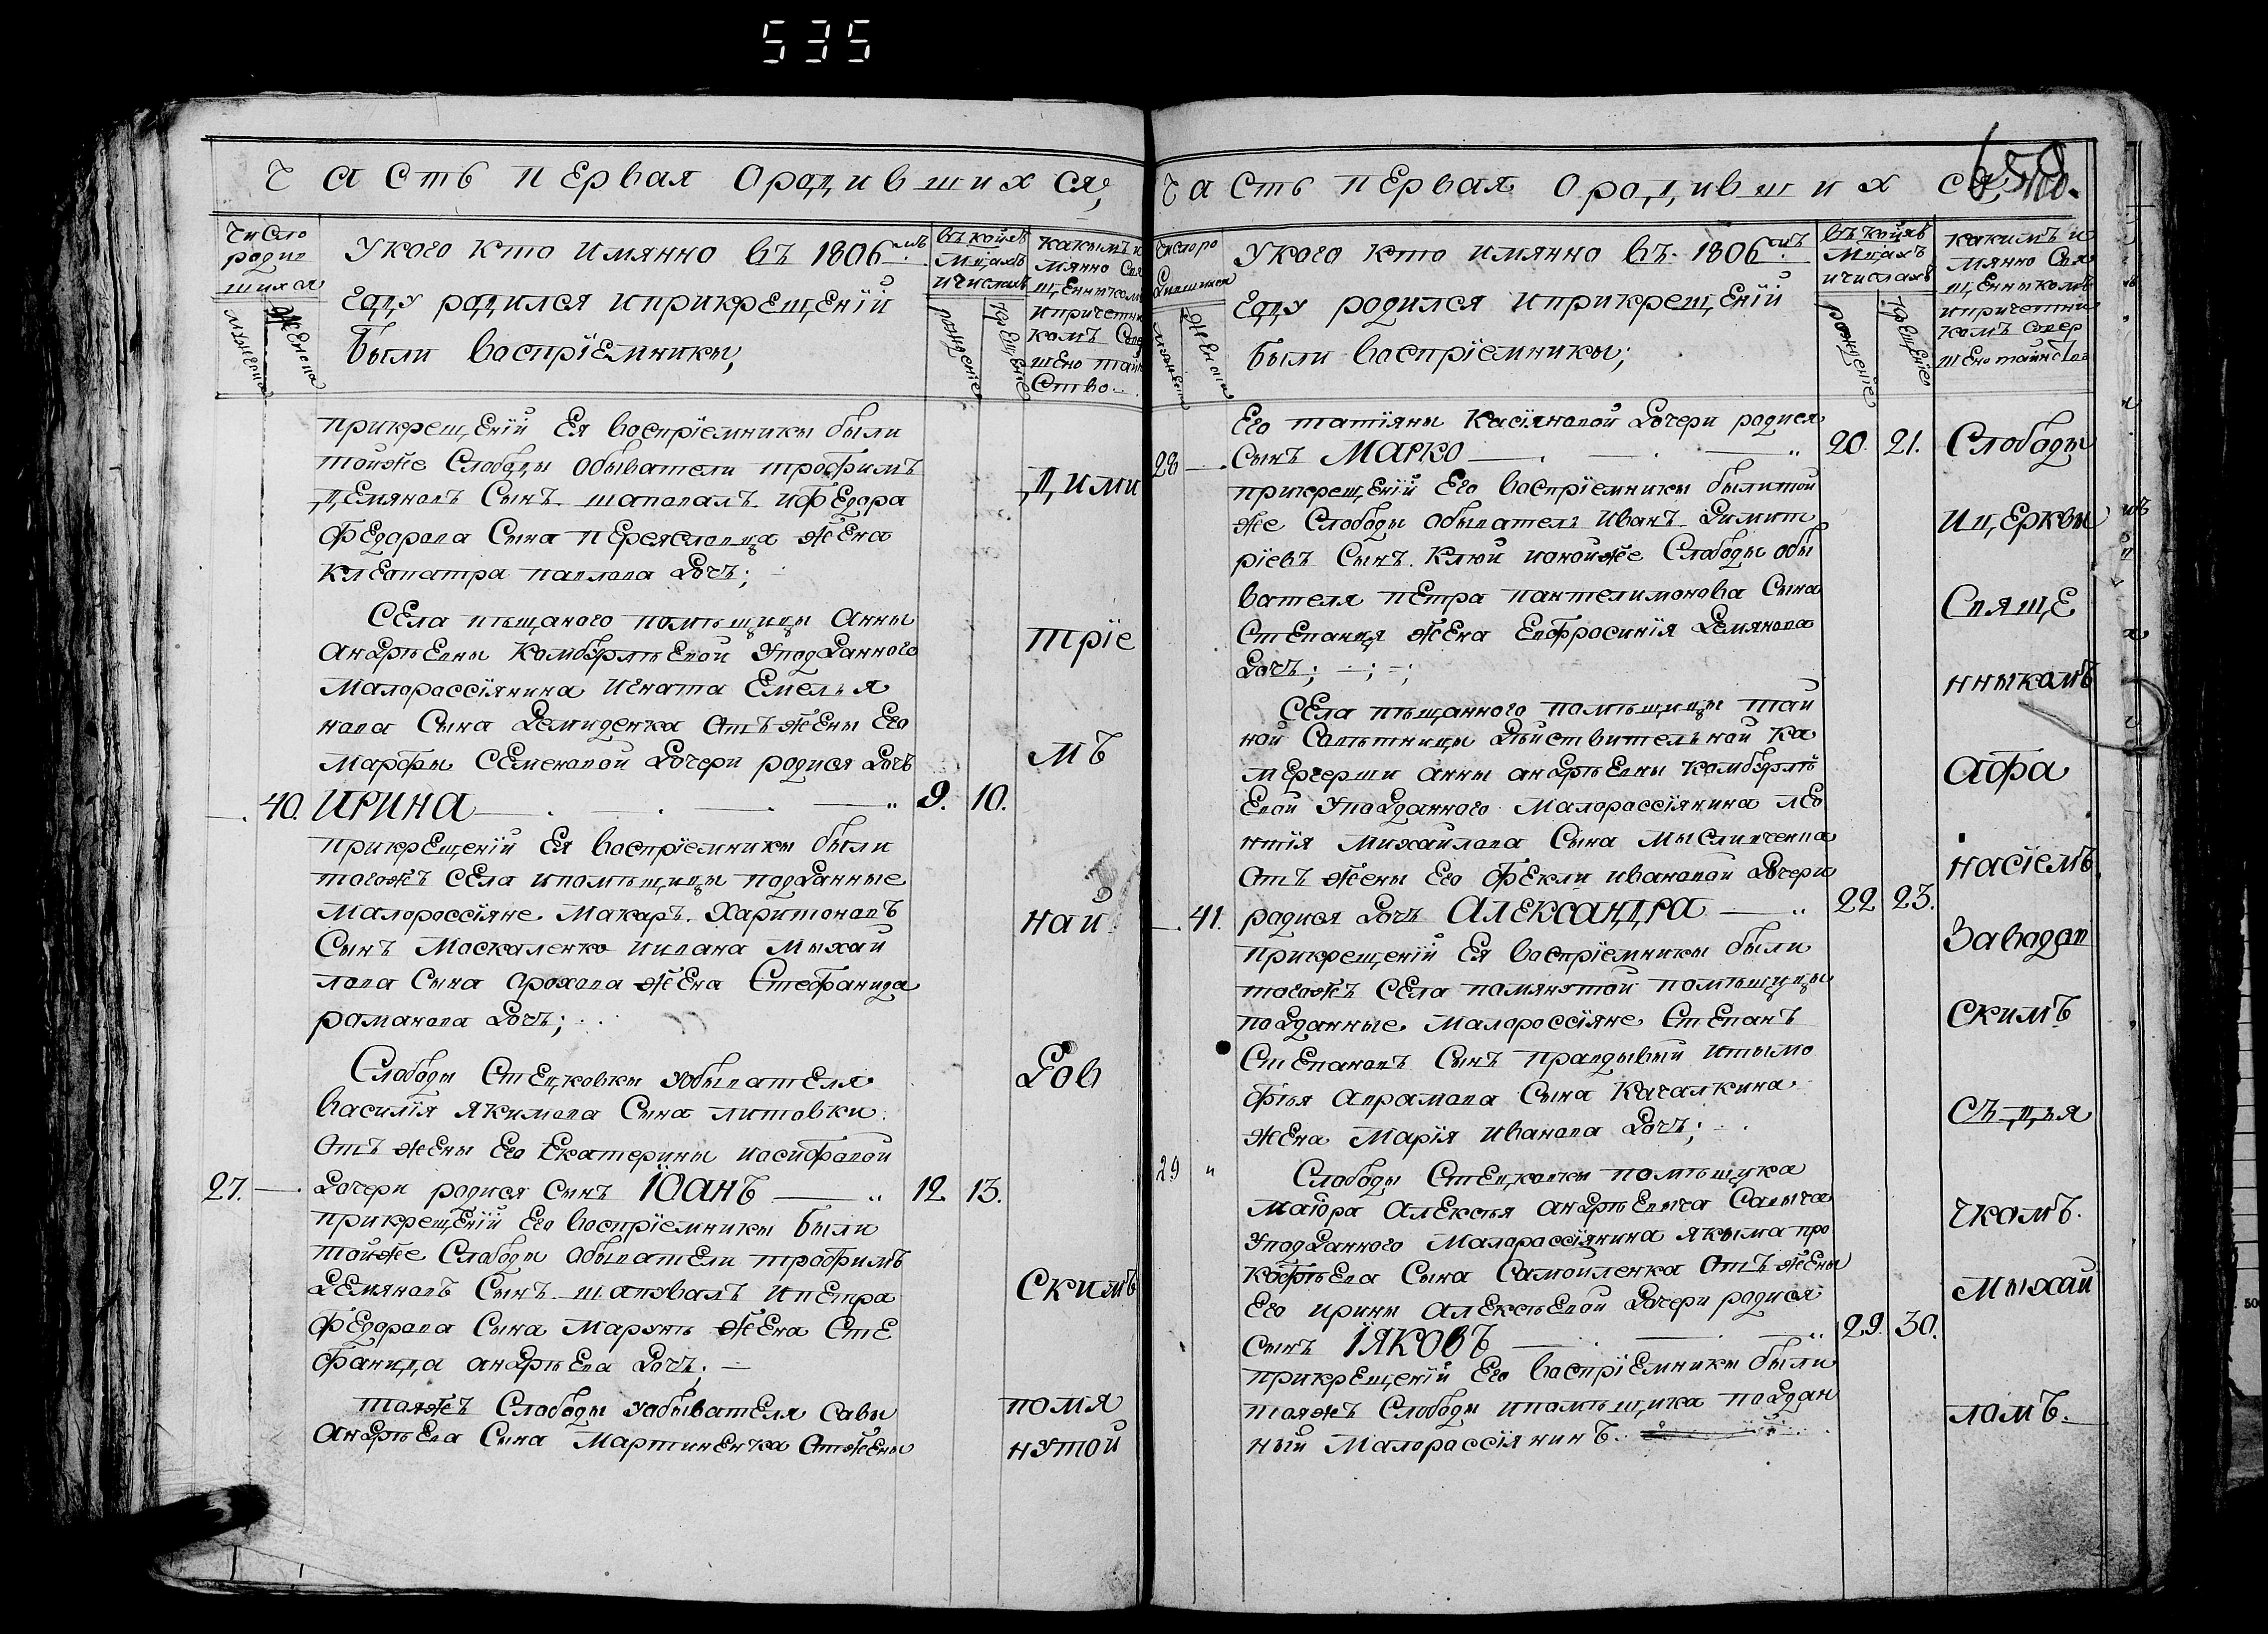 535
Часть первая ородившихся,
Число родившихся
мужеска
Женска
Укого кто имянно въ 1806мъ
Году родился иприкрещенїй
были воспрїемники,
въ коихъ мцахъ ичислахъ
рожденїе
Крещенїе
какимъ имянно
щенником
ипричетни
комъ
шено
ство
прикрещенїй Ея воспрїемники были
тойже Слободы обыватели трофимъ
Демяновъ Сынъ шаповалъ ифедора
Федорова Сына переяславца жена
Клеопатра павлова дочь;
Села пѣщаного помѣщицы Анны
Андрѣевны Комбурлѣевой Уподданного
Малороссїянина игната Емелья
нова Сына Демиденка отъ жены Его
Марфы Семеновой дочери родися дочь
40. ИРИНА 9. 10.
прикрещенїй Ея воспрїемники были
тогожъ Села ипомѣщицы подданные
Малороссїяне Макаръ Харитоновъ
Сынъ Москаленко иивана Михай
лова Сына орохова жена Стефанида
романова дочь;
Слободы Стецковки уобывателя
василїя якимова Сына литовки
отъ жены Его Екатерины иосифовой
27. дочери родися Сынъ ЇОАНЪ 12. 13.
прикрещенїй Его воспрїемники были
тойже Слободы обыватели трофимъ
Демяновъ Сынъ шаповалъ ипетра
федорова Сына Марунъ жена Сте
фанида андрѣева дочь;
тояжъ Слободы уобывателя Савы
Андрѣева Сына Мартиненка отжены
Дими
трїе
мъ
най
дов
скимъ
помя
нутой
Часть первая ородившихся,
650
Число родившихся
Женска
Укого кто имянно въ 1806мъ
Году родился иприкрещенїй
были воспрїемники;
въ коихъ мцахъ ичислахъ
рожденїе
Крещенїе
какимъ и
мянно Свя
щенникомъ
ипричетни
комъ совер
шено таинство
Его татїяны Касїяновой дочери родися
28 Сынъ МАРКО 20. 21.
прикрещенїй Его воспрїемники былитой
же Слободы обыватель иванъ Димит
рїевъ Сынъ Клюй ионойже Слободы обы
вателя петра пантелимонова Сына
Степанця жена Евфросинїя Демянова
дочь;
Села пѣщанного помѣщицы тай
ной Совѣтницы дѣйствительной ка
мергерши анны андрѣевны комбурлѣ
евой Уподданного Малороссїянина лео
нтїя михайлова Сына мысливченка
отъ жены Его феклы ивановой дочери
41. родися дочь АЛЕКСАНДРА 22 23.
прикрещенїй Ея воспрїемники были
тогожъ Села помянутой помѣщицы
подданные Малороссїяне Степанъ
Степановъ Сынъ правдывый итымо
фѣя аврамова Сына Качалкина
жена Марїя иванова дочь;
29 Слободы Стецковки помѣщика
маїора Алексѣя андрѣевича Савича
Уподданного Малороссїянина якыма про
кофѣева Сына Самойленка отъ жены
Его ирины алексѣевой дочери родися
Сынъ ЇЯКОВЪ 29. 30.
прикрещенїй Его воспрїемники были
тояжъ Слободы ипомѣщика поддан
ный Малороссїянинъ
Слободы
ицеркви
Свяще
нныкомъ
афа
насїемъ
Завадов
скимъ
Съдья
чкомъ
мыхай
ломъ.